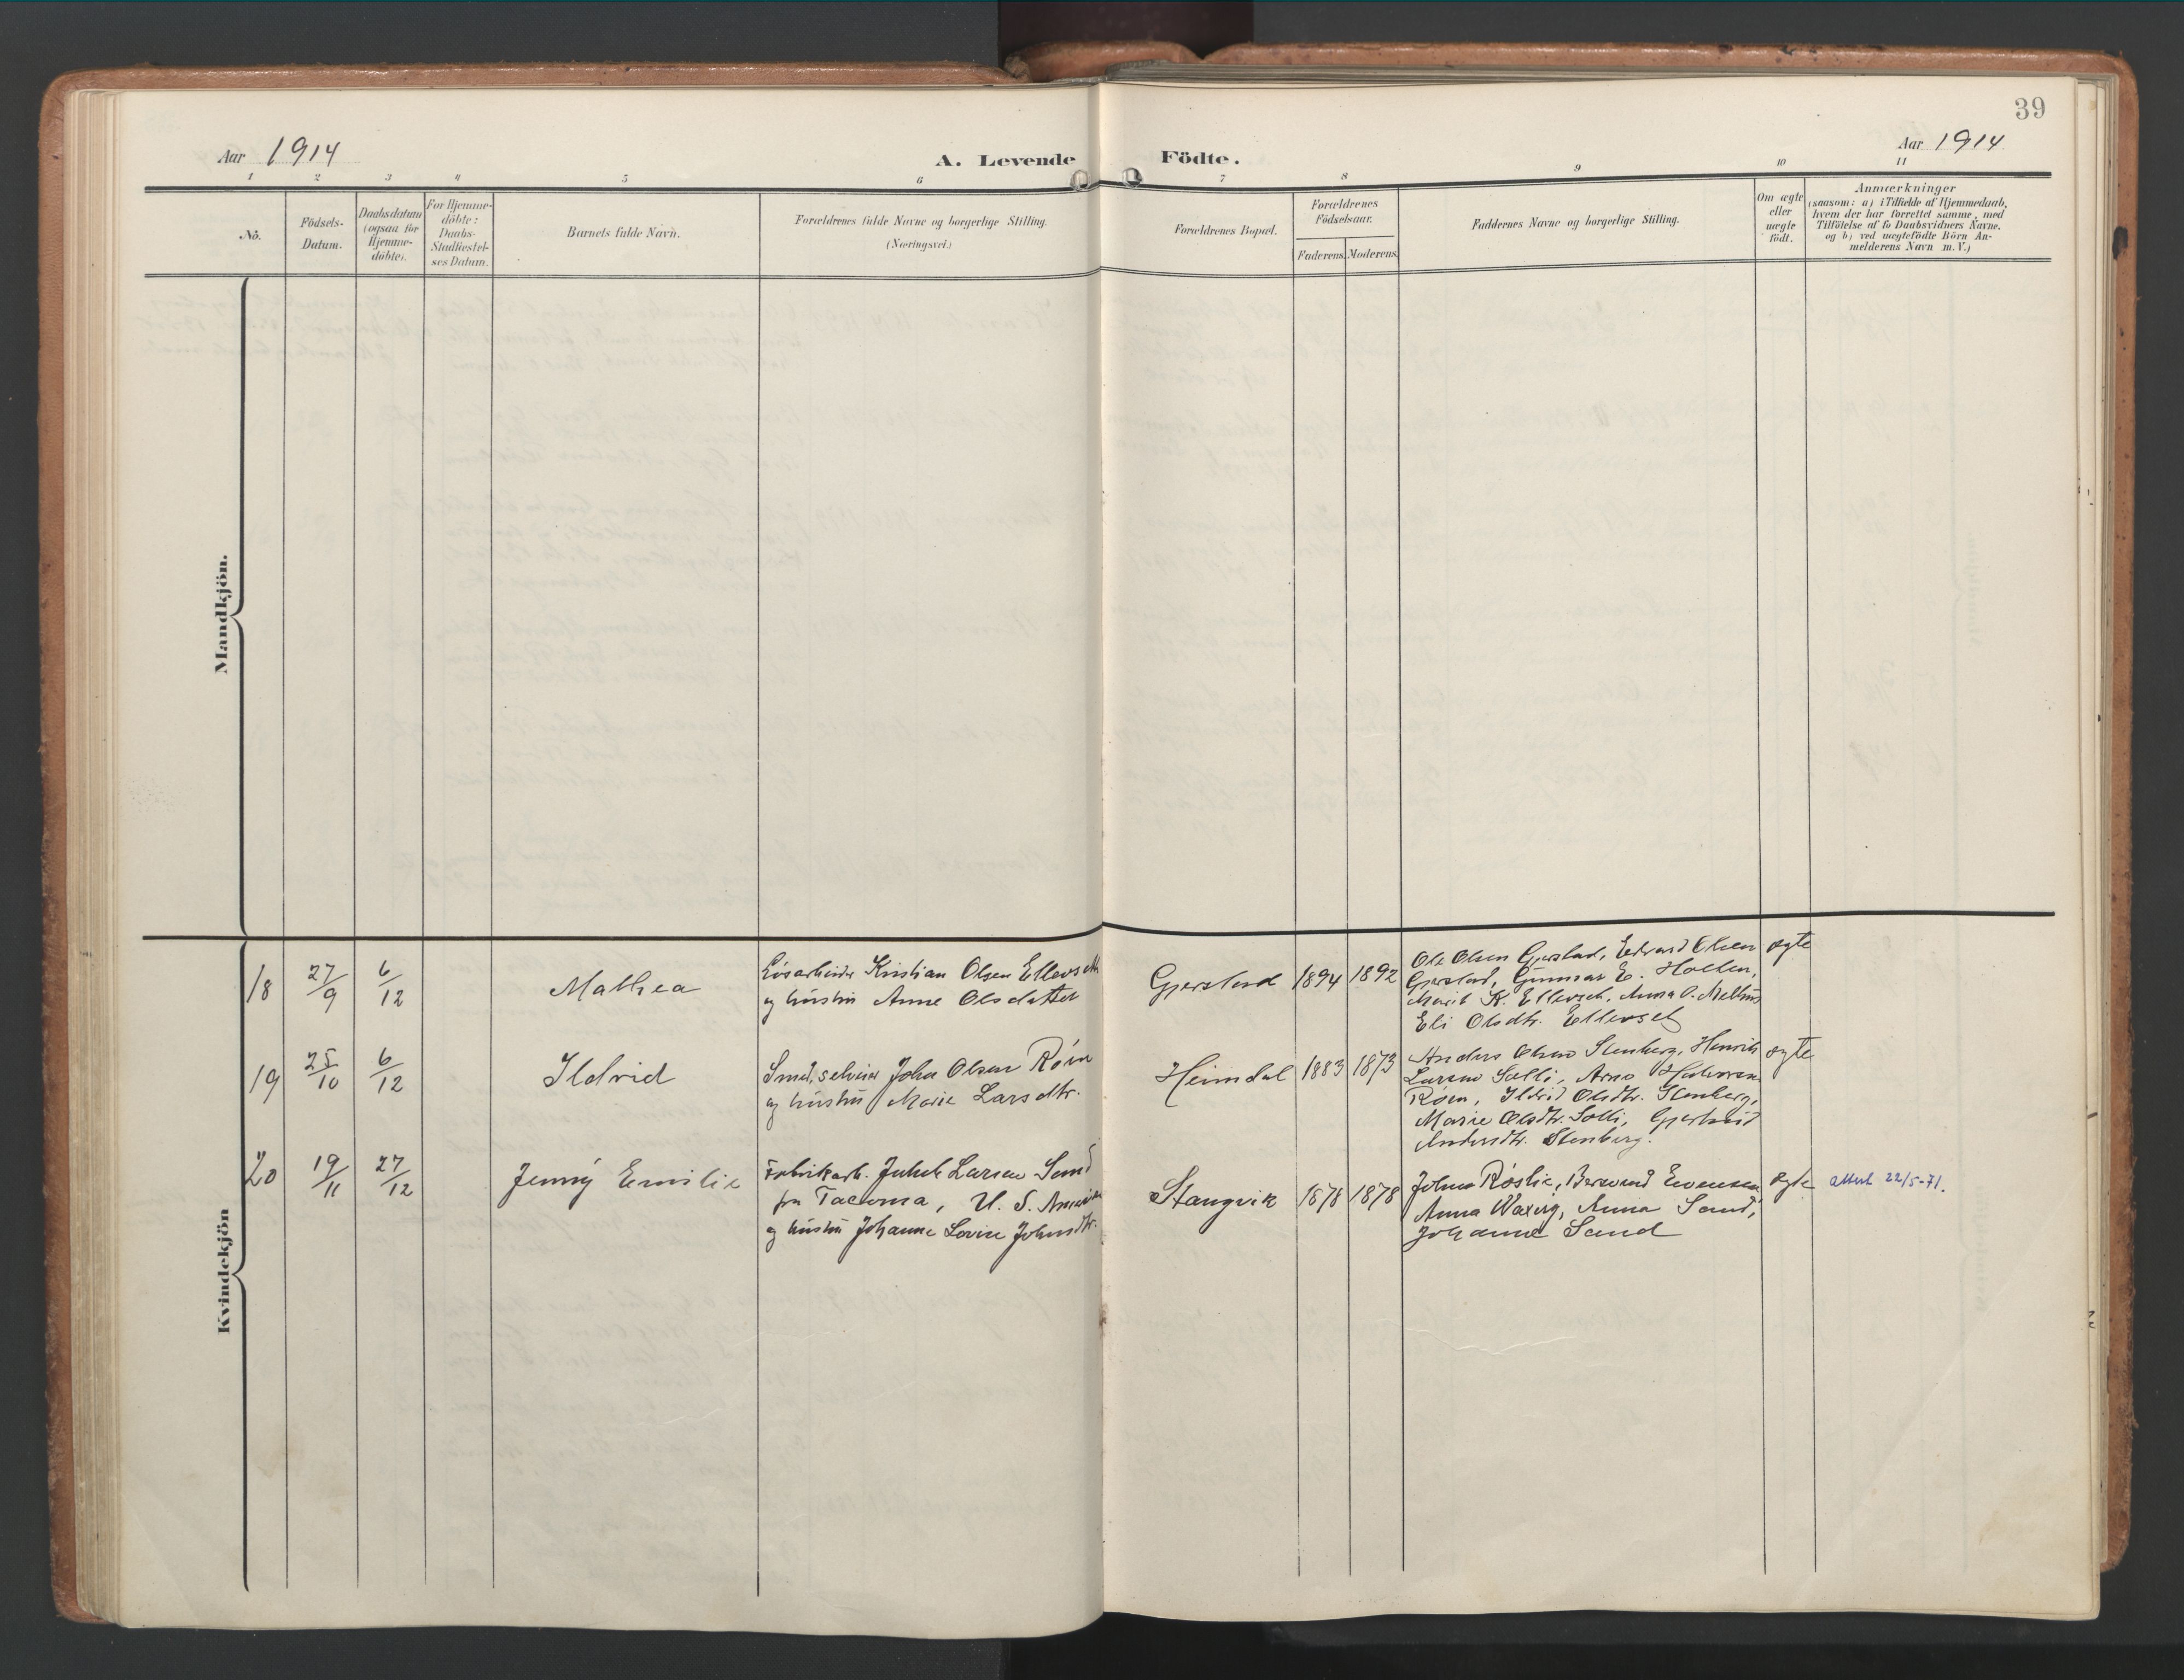 39
Aar 1914
A. Levende Födte.
Aar 1914
1 2 3 4 5 6 7 8 9 10 11
No.
Födsels-
Datum.
Daabsdatum
(ogsaa for
Hjemme-
döbte).
For Hjemme-
döbte:
Daabs-
Stadfæstel-
ses Datum.
Barnets fulde Navn.
Forældrenes fulde Navne og borgerlige Stilling.
(Næringsvei.)
Forældrenes Bopæl.
Forældrenes
Födselsaar.
Faderens. Moderens.
Faddernes Navne og borgerlige Stilling.
Om ægte
eller
uægte
födt.
Anmærkninger
(saasom: a) i Tilfælde af Hjemmedaab,
hvem der har forrettet samme, med
Tilföielse af to Daabsvidners Navne.
og b) ved uægtefödte Börn An-
melderens Navn m. V.)
Mandkjön.
Kvindekjön
18 27/9 6/12 Mathea
Løsarbeider Kristian Olsen Ellevseth
og hustru Anne Olsdatter
Gjerstad 1894 1892
Ole Olsen Gjerstad, Edvard Olsen
Gjerstad, Gunnar E. Holten,
Marit K. Ellevseth, Anna O. Melhus
Eli Olsdtr. Ellevseth
ægte
19 25/10 6/12 Ildrid
Smed, selveier John Olsen Røen
og hustru Marie Larsdtr.
Heimdal 1883 1873
Anders Olsen Stenberg, Henrik
Larsen Solli, Arne Halvorsen
Røen, Ildrid Olsdtr. Stenberg,
Marie Olsdtr. Solli, Gjertrud
Andersdtr. Stenberg.
ægte
20 19/11 27/12 Jenny Emilie
Fabrikarb. Jakob Larsen Sand
fra Tacoma, U. S. Amerika
og hustru Johanne Lovise Johnsdtr.
Stangvik 1878 1878
Johan Røslie, Evensen
Anna Waxvig, Anna Sand,
Johanne Sand
ægte
attest 22/5-71.